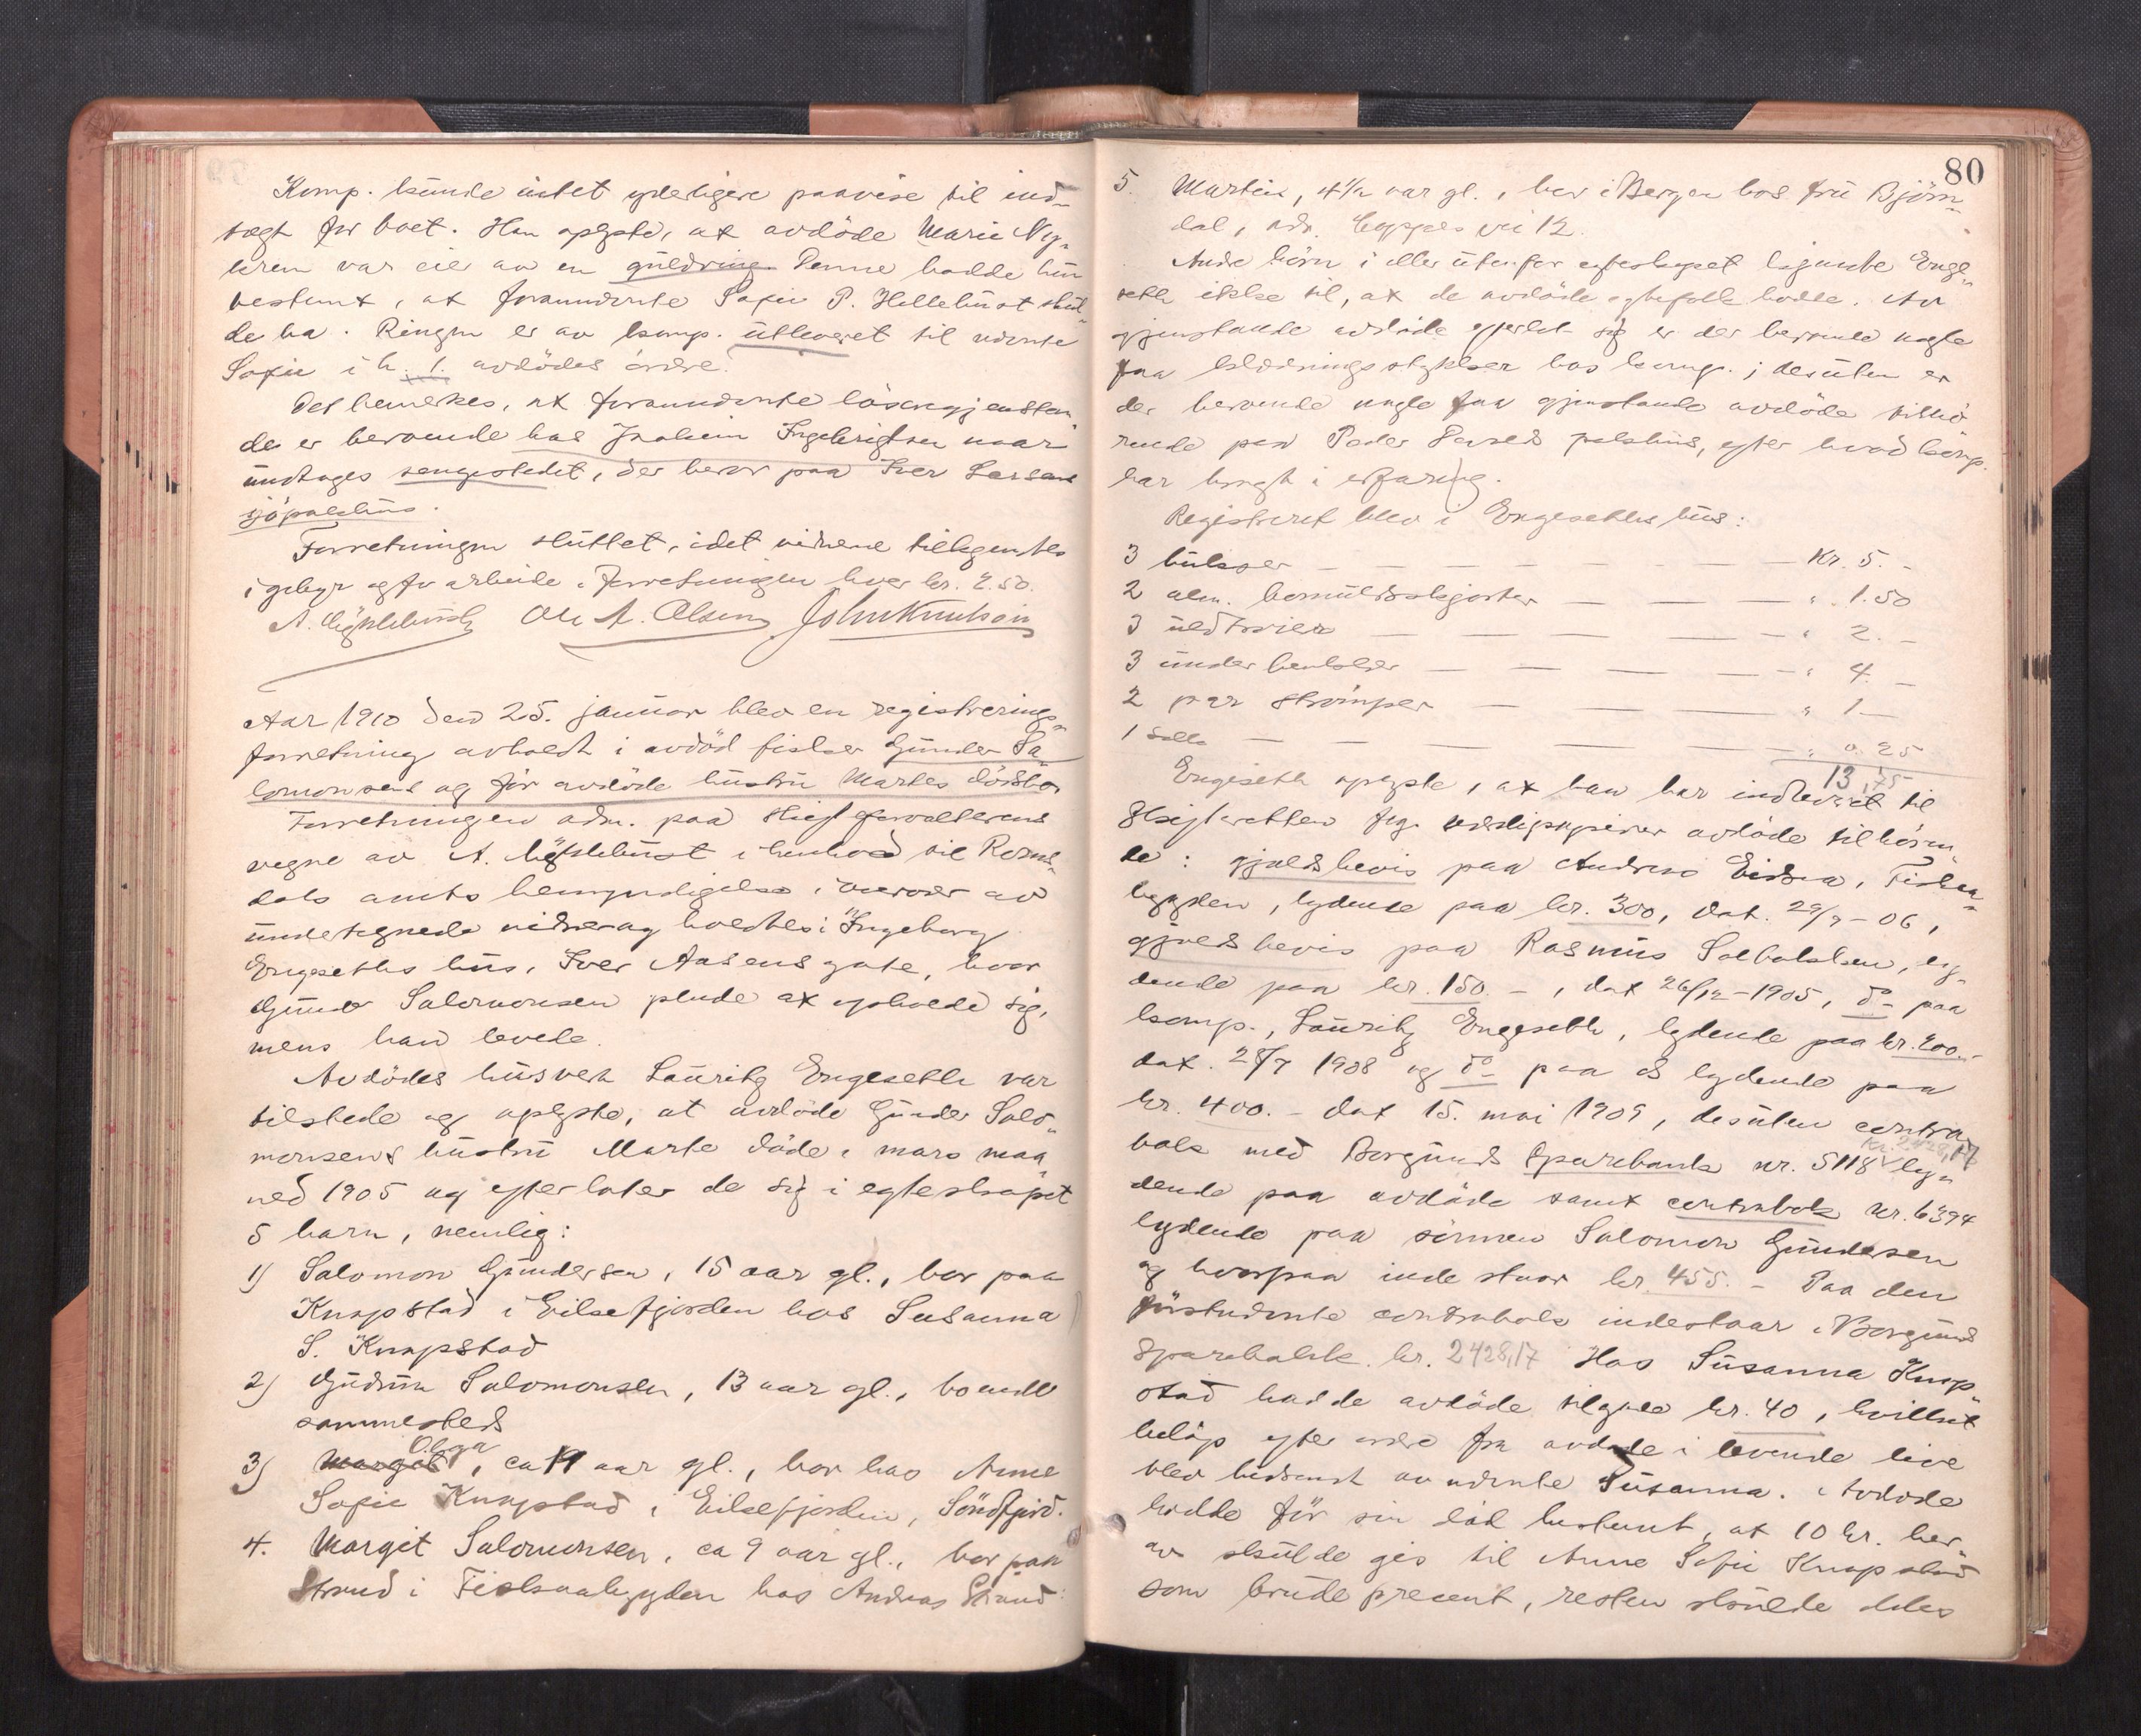 Komp. kunde intet yderligere paavise til ind-
tægt for boet. Han oplyste, at avdöde Marie Ny-
løren var eier av en guldring. Denne hadde hun
bestemt, at foranneynte Sofie P. Hellebust skul-
de ha. Ringen er av komp. utleveret til nævnte
Sofie i h. t. avdödes ordre.
Det bemerkes, at forannævnte lösöregjenstan-
de er beroende hos Joakim Ingebrigtsen naar
undtages sengestedet, der beror paa Iver Larsens
sjöpakhus.
Forretningen sluttet, idet vidnene tilkjendtes
i gebyr og for arbeide i forretningen hver kr. 2.50.
A. Ole A. Olsen John Knutsen
Aar 1910 den 25. januar blev en registrerings-
forretning avholdt i avdöd fisker Gunder Sa-
lomonsens og för avdöde hustru Martes dödsbo.
Forretningen adm. paa skifteforvalterens
vegne av A. i henhold til Roms-
dals amts bemyndigelse i overvær av
undertegnede vidner og holdtes i Ingeborg
Engeseths hus, Iver Aasens gate, hvor
Gunder Salomonsen pleide at opholde sig,
mens han levede.
Avdödes husvert Lauritz Engeseth var
tilstede og oplyste, at avdöde Gunder Salo-
monsens hustru Marte döde i mars maa-
ned 1905 og efterlater de sig i egteskapet
5 barn, nemlig:
1) Salomon Gundersen, 15 aar gl., bor paa
Knapstad i Eikefjorden hos Susanna
S. Knapstad
2) Gudrun Salomonsen, 13 aar gl., boende
sammesteds
3) Margit Olga, ca 11 aar gl., bor hos Anne
Sofie Knapstad i Eikefjorden, Söndfjord.
4. Margit Salomonsen, ca 9 aar gl., bor paa
Strand i Fiskaabygden hos Andreas Strand.
80
5. Martin, 4 1/2 aar gl., bor i Bergen hos fru Björn-
dal, adr. vei 12.
Andre börn i eller utenfor egteskapet kjendte Enge-
seth ikke til, at de avdöde egtefolk hadde. Av
gjenstande avdöde efterlot sig er der beroende nogle
faa klædningsstykker hos komp.; desuten er
der beroende nogle faa gjenstande avdöde tilhö-
rende paa Peder pakhus, efter hvad komp.
har bragt i erfaring.
Registreret blev i Engeseths hus:
3 bukser — — — Kr. 5. -
2 alm. bomuldsskjorter — — — " 1.50
3 uldtröier — — — " 2. -
3 underbenklær — — — " 4. -
2 par strömper — — — " 1 —
1 — — — " 0.25
13,75
Engeseth oplyste, at han har indleveret til
Skifteretten flg. verdipapirer avdöde tilhören-
de: gjeldsbevis paa Andreas Eidsaa, Fiskaa-
bygden, lydende paa kr. 300, dat. 29/9-06,
gjeldsbevis paa Rasmus Solbakken, ly-
dende paa kr. 150.-, dat 26/12-1905, do- paa
komp., Lauritz Engeseth, lydende paa kr. 200.-
dat. 28/7 1908 og do- paa ds lydende paa
kr. 400.- dat 15. mai 1909, desuten contra-
bok med Borgunds Sparebank nr. 5118 kr. 2428,17 ly-
dende paa avdöde samt contrabok nr. 6394
lydende paa sönnen Salomon Gundersen
og hvorpaa inde staar kr. 455.- Paa den
förstnævnte contrabok indestaar i Borgund
Sparebank kr. 2428,17 Hos Susanna Knap-
stad hadde avdöde tilgode kr. 40, hvilket
belöp efter ordre fra avdöde i levende live
blev av nævnte Susanna. Avdöde
hadde för sin död bestemt, at 10 kr. her-
av skulde gis til Anne Sofie Knapstad
som brudepresent, resten skulde deles